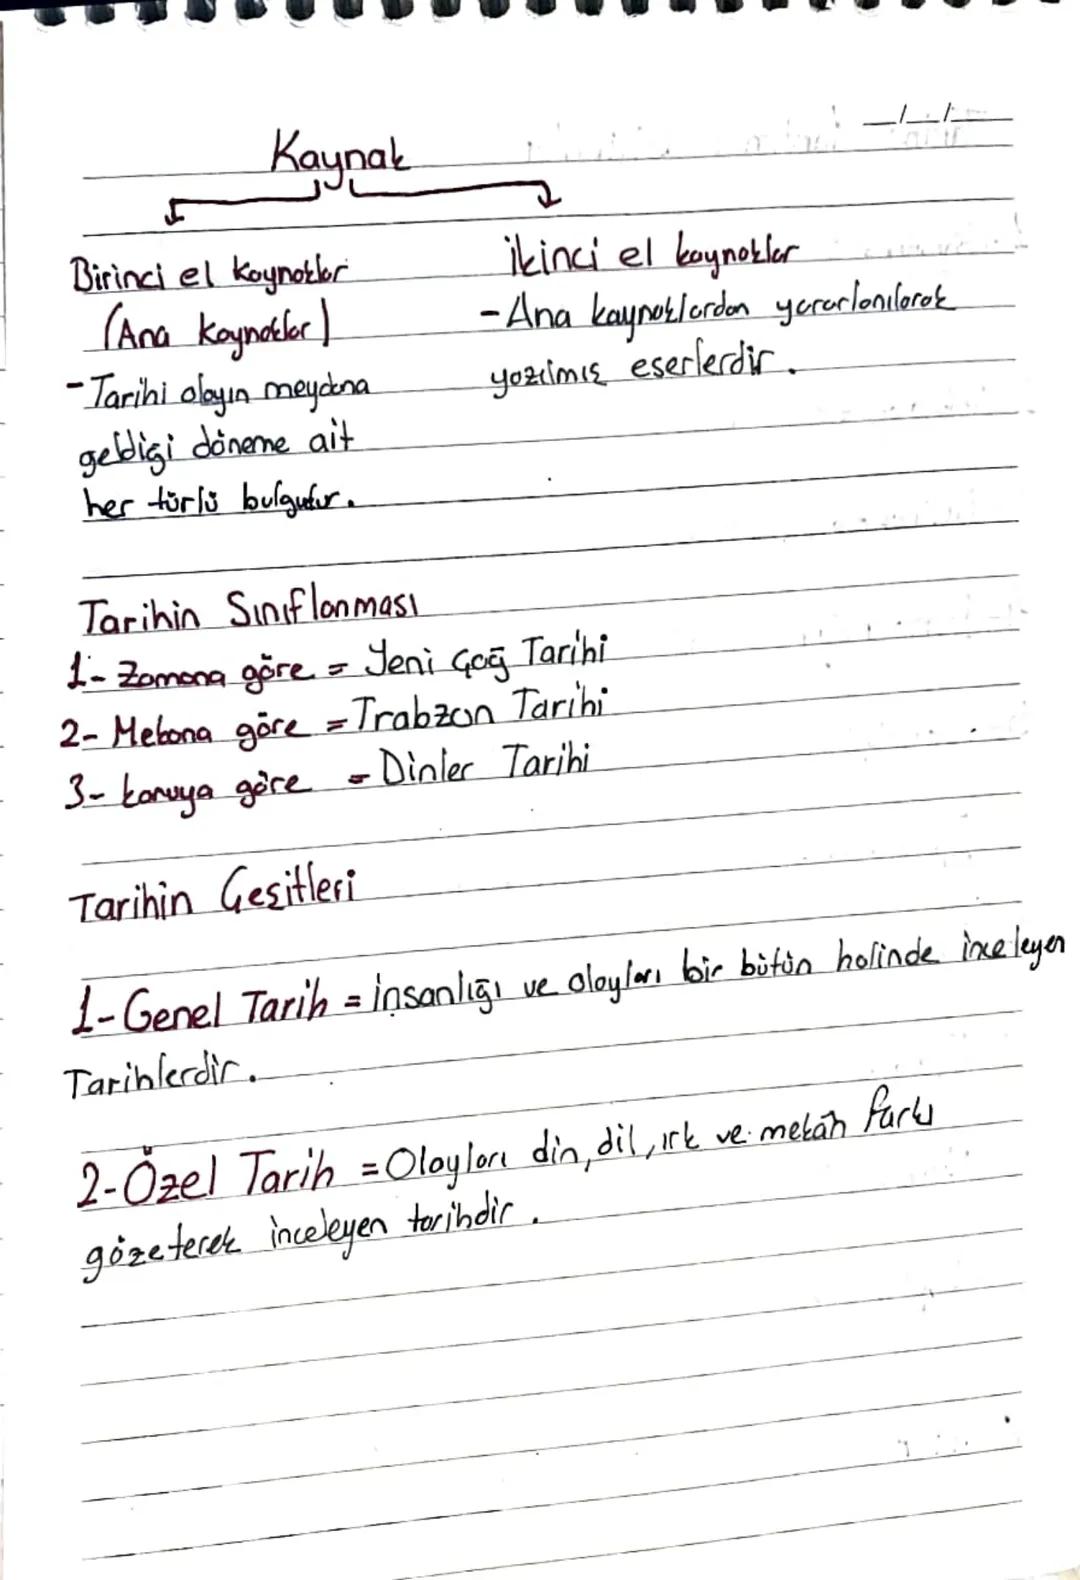 Kaynak
Birinci el kaynaklar
(Ana kaynaklar)
-Tarihi olayın meydana
geldiği döneme ait
her türlü bulgudur.
İkinci el kaynaklar
-Ana kaynaklardan yararlanılarak
yazılmış eserlerdir.
Tarihin Sınıflanması
1- Zamana göre = Yeni Çağ Tarihi
2- Mekana göre = Trabzon Tarihi
3- konuya göre = Dinler Tarihi
Tarihin Çeşitleri
1-Genel Tarih = İnsanlığı ve olayları bir bütün halinde inceleyen
Tarihlerdir.
2-Özel Tarih = Olayları din, dil, ırk ve mekân farkı
gözeterek inceleyen tarihdir.